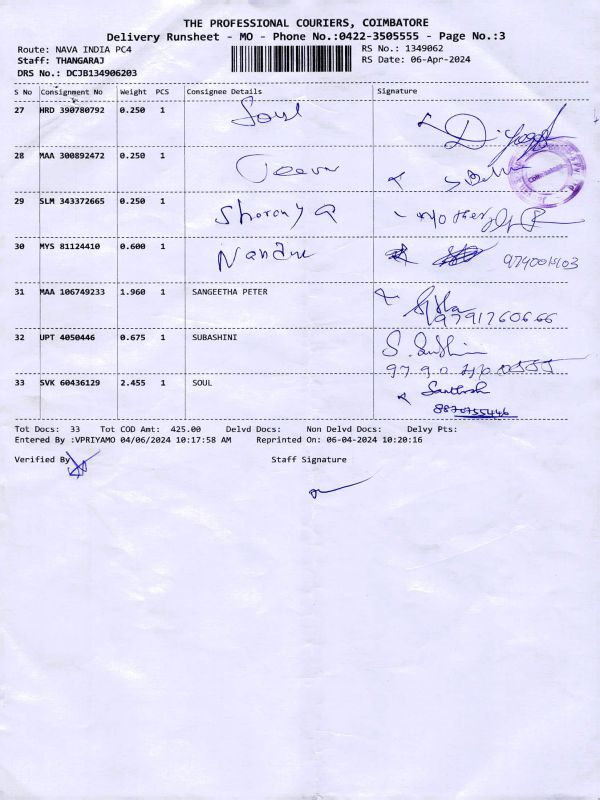 THE PROFESSIONAL COURIERS, COIMBATORE
Delivery Runsheet - MO - Phone No.:0422-3505555 - Page No.:3
Route: NAVA INDIA PC4 RS No.: 1349062
Staff: THANGARAJ RS Date: 06-Apr-2024
DRS No.: DCJB134906203
S No Consignment No Weight PCS Consignee Details Signature
27 HRD 390780792 0.250 1 Soul
28 MAA 300892472 0.250 1 Jeeva
29 SLM 343372665 0.250 1 Sharany a Mother
30 MYS 81124410 0.600 1 Nandni
31 MAA 106749233 1.960 1 SANGEETHA PETER
9791760666
32 UPT 4050446 0.675 1 SUBASHINI
33 SVK 60436129 2.455 1 SOUL Santhosh
8870755446
Tot Docs: 33 Tot COD Amt: 425.00 Delvd Docs: Non Delvd Docs: Delvy Pts:
Entered By :VPRIYAMO 04/06/2024 10:17:58 AM Reprinted On: 06-04-2024 10:20:16
Verified By Staff Signature